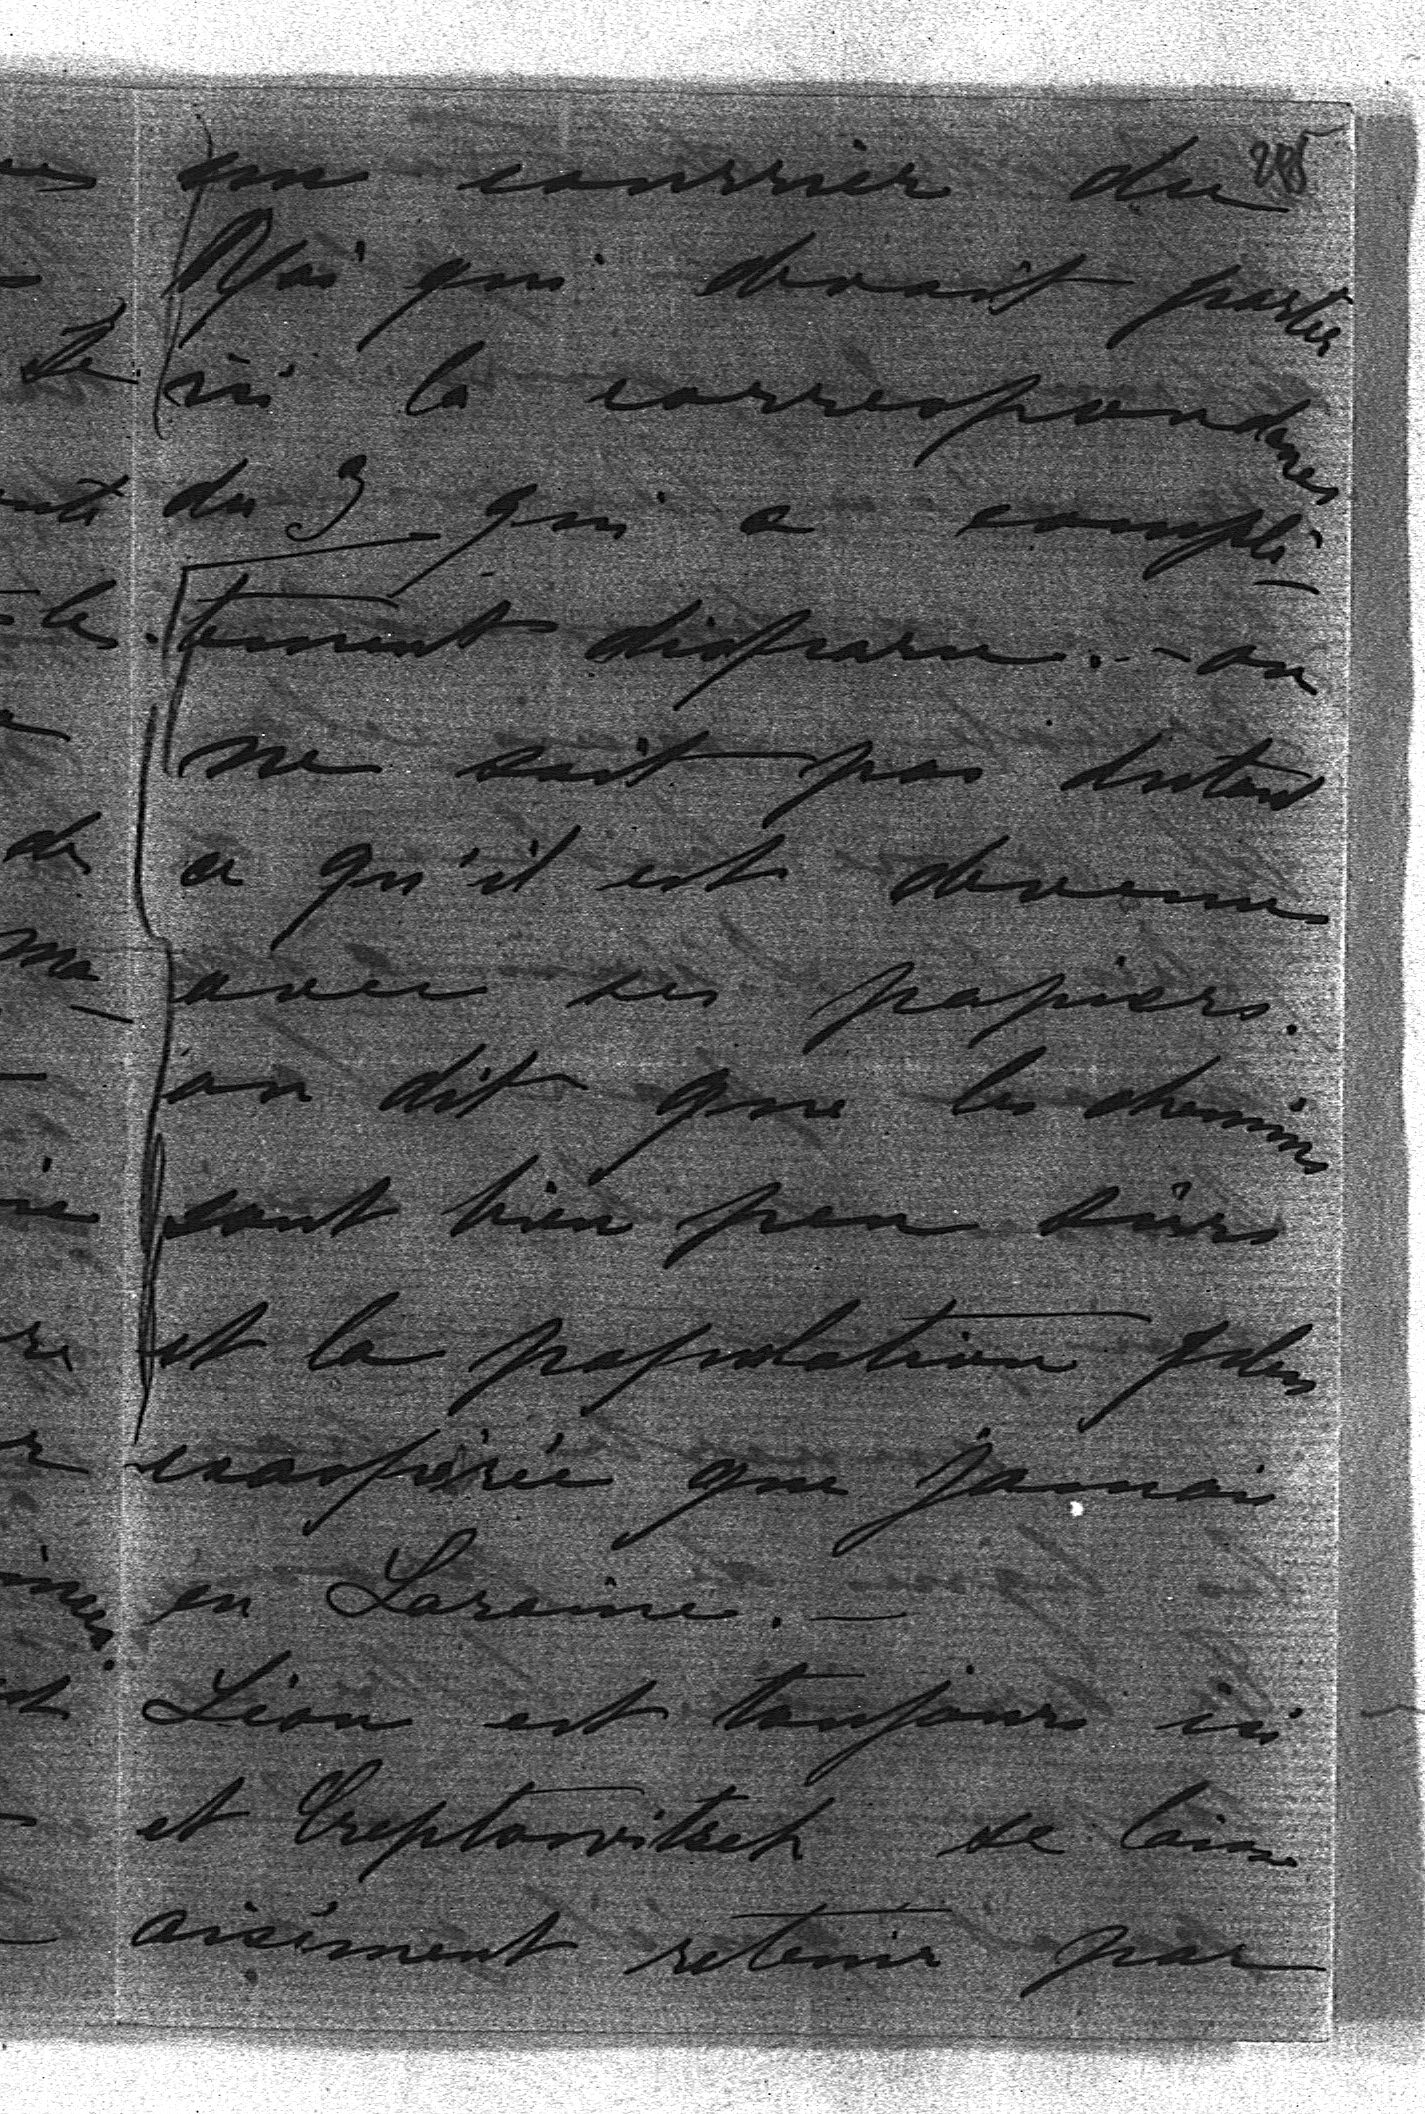 285
un courrier du
Roi qui devait porter
ici la correspondance
du 3 qui a complè-
tement disparu. - on
ne sait pas du tout
ce qu'il est devenu
avec ses papiers.
on dit que les chemins
sont bien peu sûrs
et la population plus
exaspérée que jamais
en Loraine. -
Léon est toujours ici
et Creptowitsch se laisse
aisément retenir par